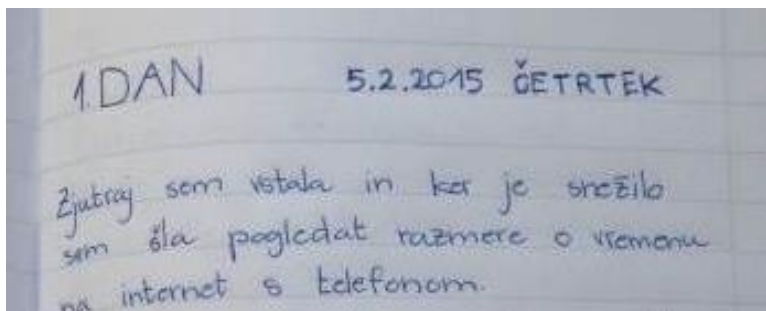 1. DAN 5.2.2015 ČETRTEK
Zjutraj sem vstala in ker je snežilo
sem šla pogledat razmere o vremenu
na internet s telefonom.